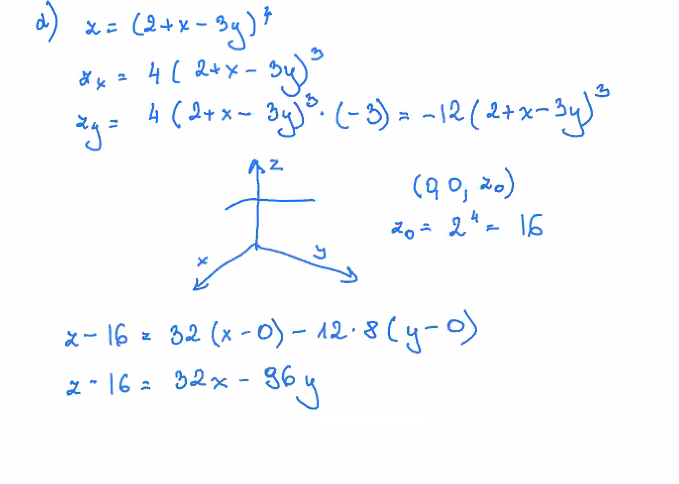 d) z = (2+x-3y)⁴
zₓ = 4(2+x-3y)³
z_y = 4(2+x-3y)³·(-3) = -12(2+x-3y)³
z
(0,0, z₀)
z₀ = 2⁴ = 16
x y
z-16 = 32(x-0)-12·8(y-0)
z-16 = 32x-96y